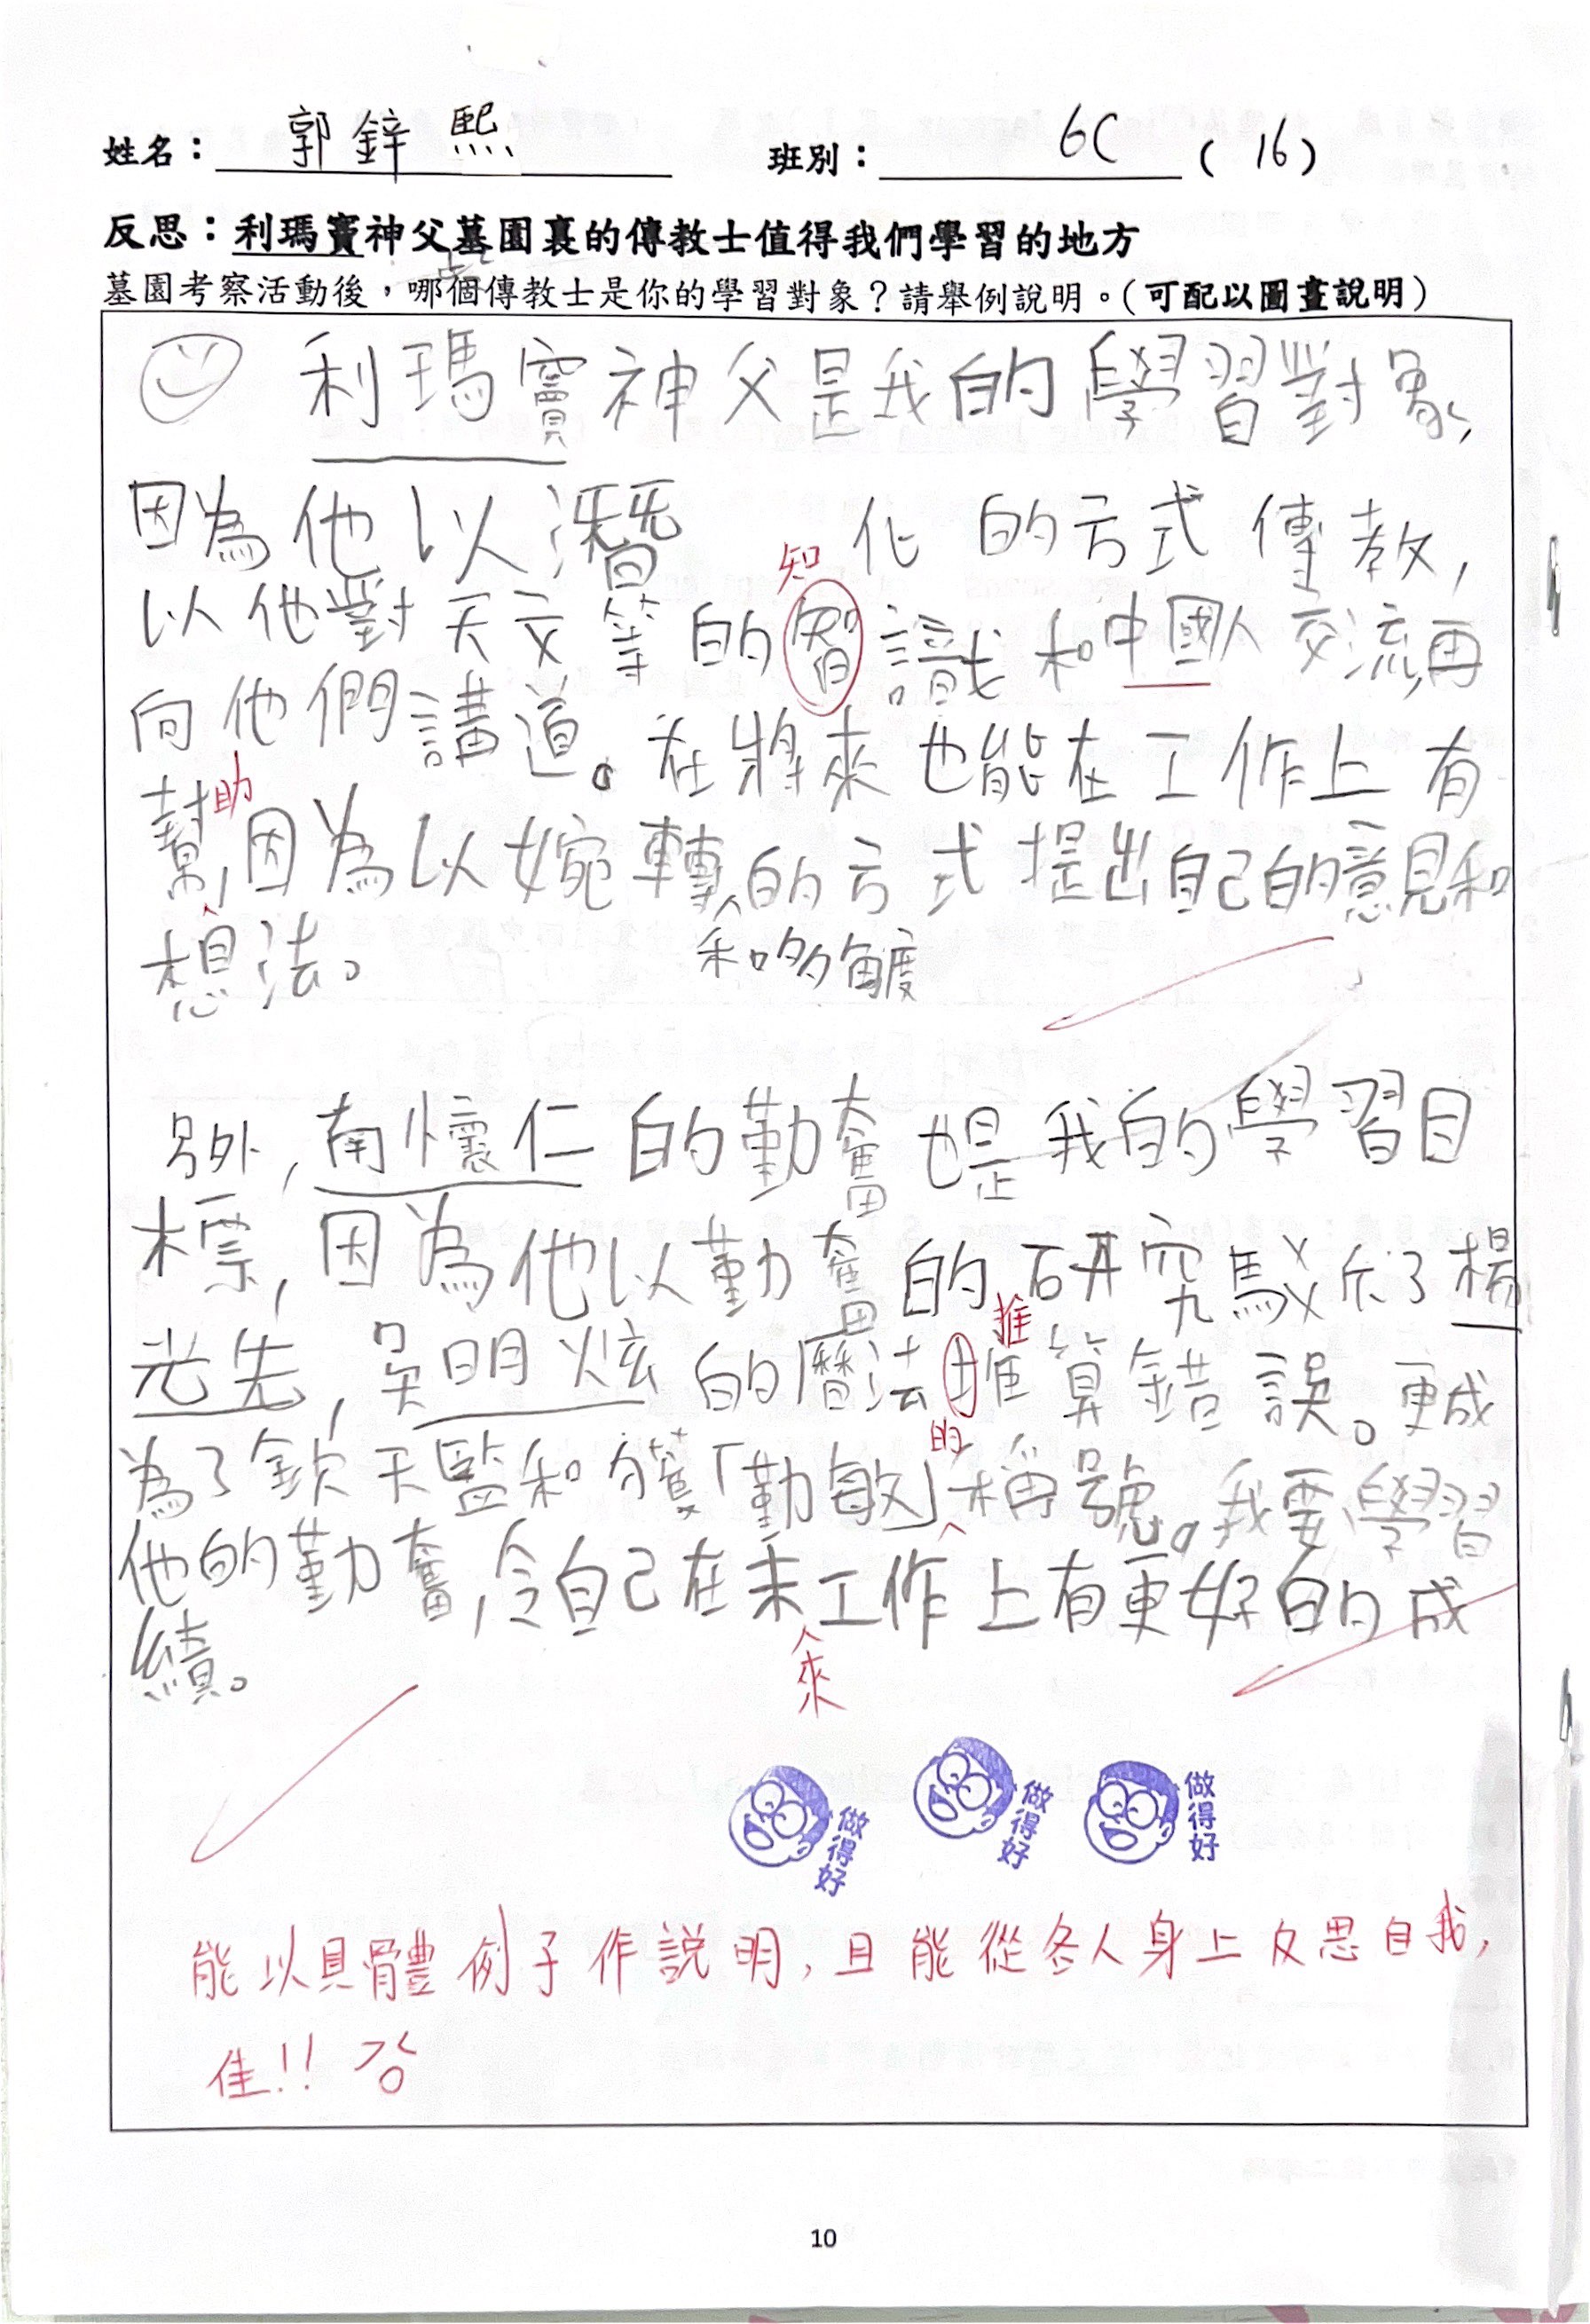 姓名：郭鋅熙 班別：6C（16）
反思：利瑪竇神父墓園裏的傳教士值得我們學習的地方
墓園考察活動後，哪個傳教士是你的學習對象？請舉例說明。（可配以圖畫說明）
利瑪竇神父是我的學習對象，
因為他以潛 化 的方式傳教，
知
以他對天文等的智識和中國人交流，再
向他們講道。在將來也能在工作上有
助
幫，因為以婉轉的方式提出自己的意見和
想法。
和多角度
另外，南懷仁的勤奮也是我的學習目
標，因為他以勤奮的研究駁斥了楊
推
光先，吳明炫的曆法堆算錯誤。更成
的
為了欽天監和獲「勤敏」稱號。我要學習
他的勤奮，令自己在未工作上有更好的成
來
績。
做得好
做得好
做得好
能以具體例子作說明，且能從各人身上反思自我，
佳!!
10